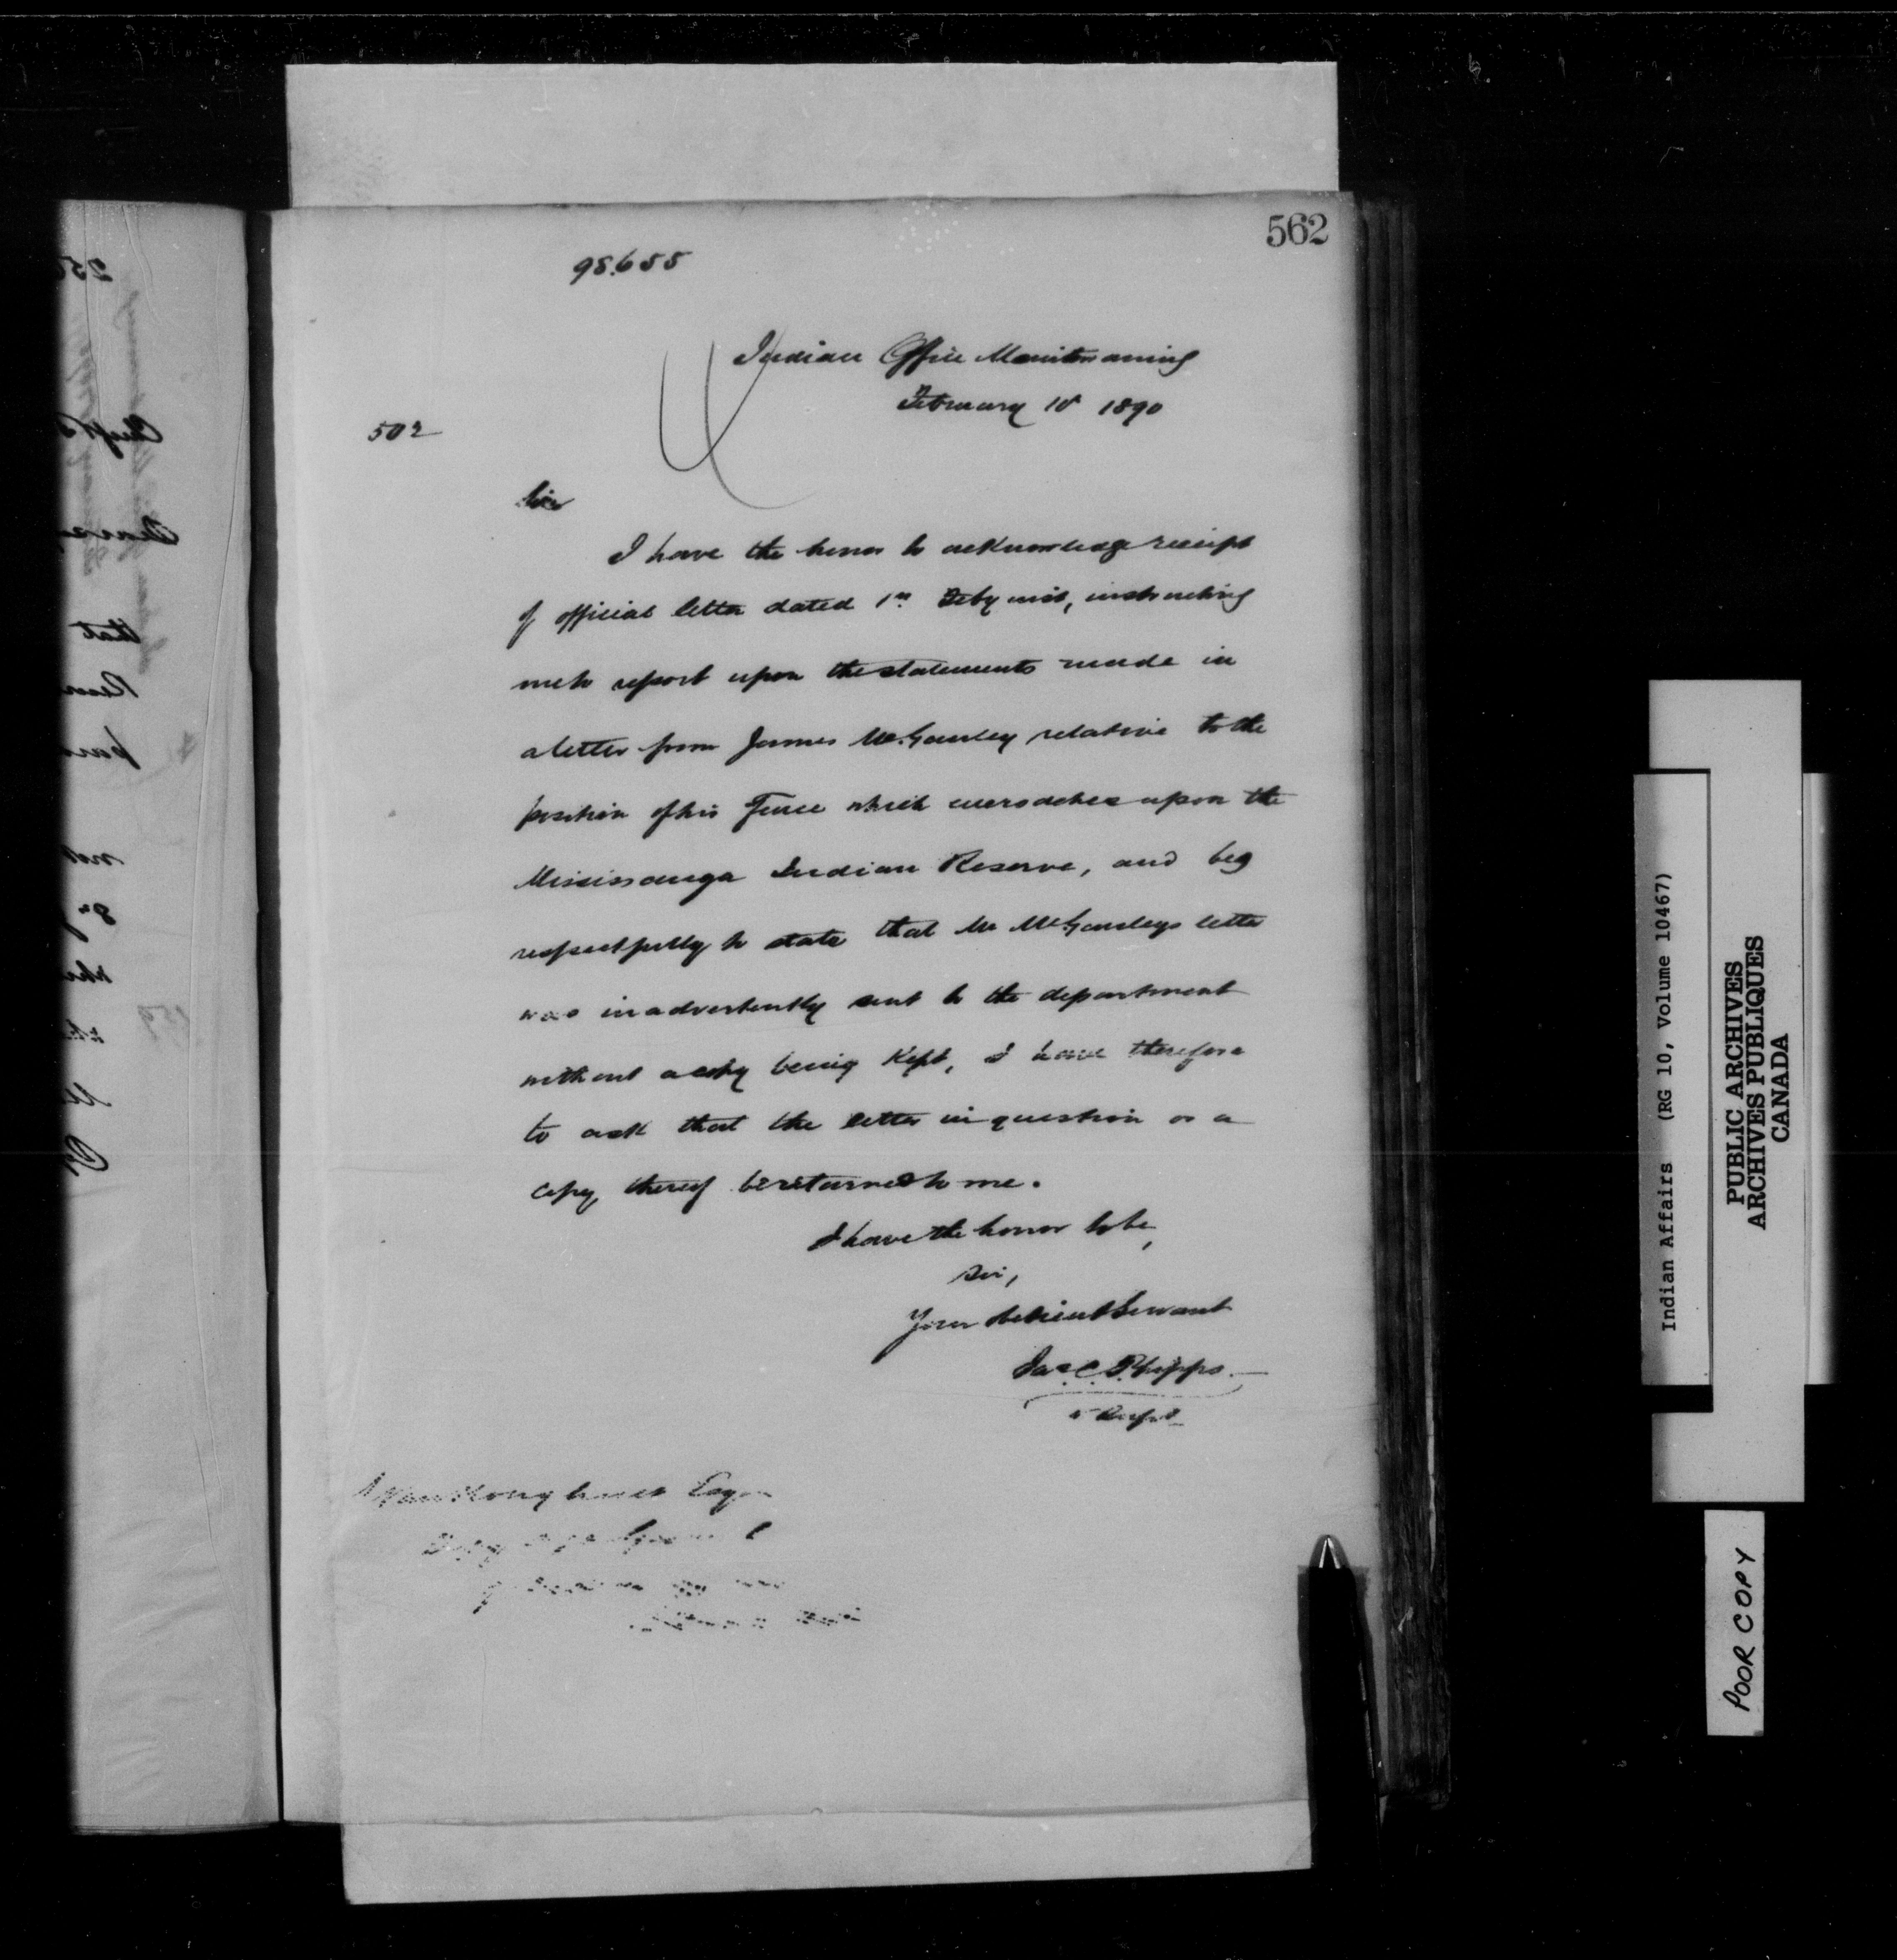 562
98.655
Indian Office Manitowaning
February 10 1890
502
Sir
I have the honor to acknowledge receipt
of official letter dated 1st Feby inst, instructing
me to report upon the statements made in
a letter from James McGauley relative to the
position of his Fence which encroaches upon the
Mississauga Indian Reserve, and beg
respectfully to state that Mr McGauleys letter
was inadvertently sent to the department
without a copy being Kept, I have therefore
to ask that the letter in question or a
copy thereof be returned to me.
I have the honor to be,
Sir,
Your obedient Servant
Jas. C. Phipps.
V. Supt
L Vankoughnet Esq
Indian Affairs (RG 10, Volume 10467)
PUBLIC ARCHIVES
ARCHIVES PUBLIQUES
CANADA
POOR COPY